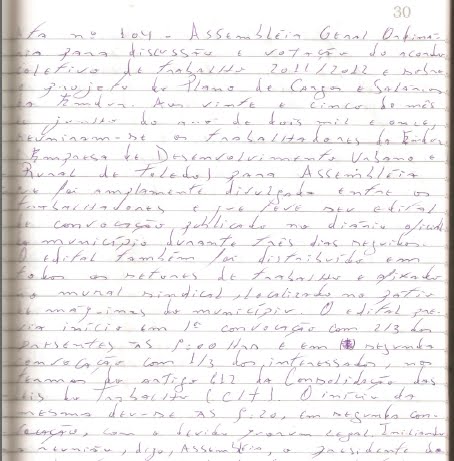 30
Ata no 104 - Assembléia Geral Ordiná-
ria para discussão e votação do acordo
coletivo de trabalho 2011/2012 e sobre
o projeto do Plano de Cargos e Salários
da Emdur. Aos vinte e cinco do mês
de junho do ano de dois mil e onze,
reuniram-se os trabalhadores da Emdur
(Empresa de Desenvolvimento Urbano e
Rural de Toledo) para Assembléia
que foi amplamente divulgada entre os
trabalhadores e que teve seu edital
de convocação publicado no diário oficial
do município durante três dias seguidos.
O edital também foi distribuído em
todos os setores de trabalho e afixado
no mural sindical, localizado no pátio
de máquinas do município. O edital pre-
via início em 1ª convocação com 2/3 dos
presentes às 8:00 Hrs e em segunda
convocação com 1/3 dos interessados, nos
termos do artigo 612 da Consolidação das
Leis do Trabalho (CLT). O início da
mesma deu-se às 8:20, em segunda con-
vocação, com o devido quorum legal. Iniciando
a reunião, digo, Assembléia, o presidente do